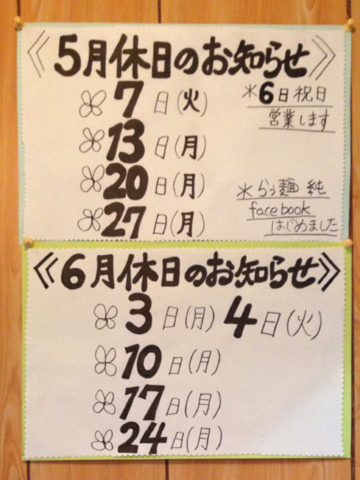 《5月休日のお知らせ》
7日(火)
13日(月)
20日(月)
27日(月)
*6日祝日
営業します
*らぅ麺 純
facebook
はじめました
《6月休日のお知らせ》
3日(月) 4日(火)
10日(月)
17日(月)
24日(月)